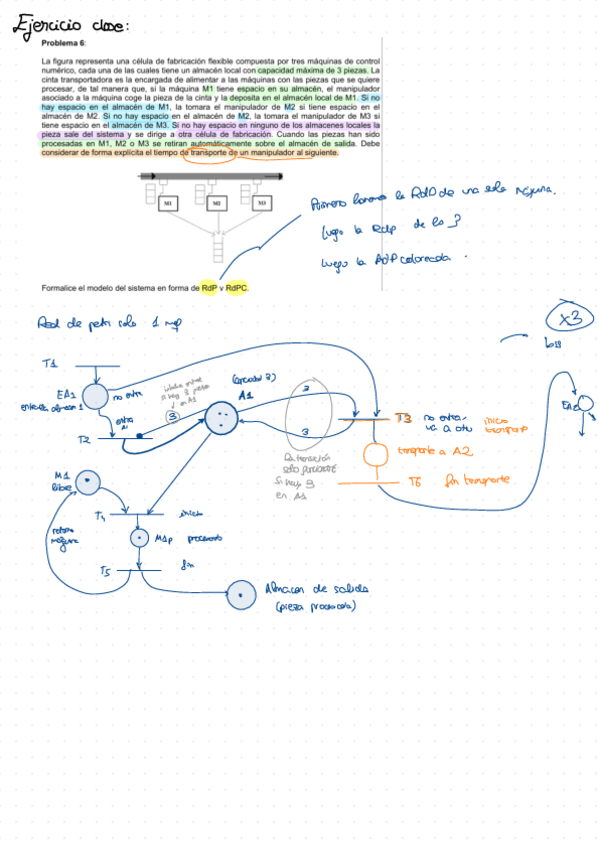 Ejercicio clase:
Problema 6:
La figura representa una célula de fabricación flexible compuesta por tres máquinas de control
numérico, cada una de las cuales tiene un almacén local con capacidad máxima de 3 piezas. La
cinta transportadora es la encargada de alimentar a las máquinas con las piezas que se quiere
procesar, de tal manera que, si la máquina M1 tiene espacio en su almacén, el manipulador
asociado a la máquina coge la pieza de la cinta y la deposita en el almacén local de M1. Si no
hay espacio en el almacén de M1, la tomara el manipulador de M2 si tiene espacio en el
almacén de M2. Si no hay espacio en el almacén de M2, la tomara el manipulador de M3 si
tiene espacio en el almacén de M3. Si no hay espacio en ninguno de los almacenes locales la
pieza sale del sistema y se dirige a otra célula de fabricación. Cuando las piezas han sido
procesadas en M1, M2 o M3 se retiran automáticamente sobre el almacén de salida. Debe
considerar de forma explícita el tiempo de transporte de un manipulador al siguiente.
M1 M2 M3
Primero haremos la RdP de una sola máquina.
luego la Rdp de los 3
luego la RdP coloreada.
Formalice el modelo del sistema en forma de RdP y RdPC.
Red de petri solo 1 mp
x3
T1
EA1
no entra
entrada almacen 1
entra
T2
3
A1
3
3
T3 no entra
va a otra
inicio
transporte
transporte a A2
T6 fin transporte
la transición
solo
si hay 3
en A1
EA2
M1
libre
T4 inicio
M1p procesando
T5 fin
Almacen de salida
(pieza procesada)